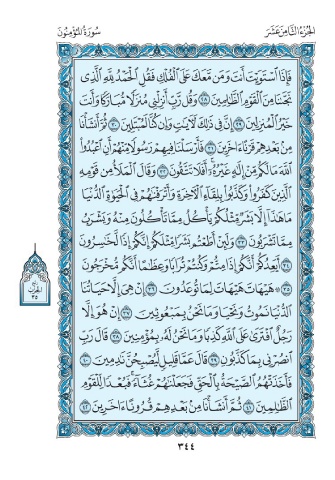 الجزء الثامن عشر
سورة المؤمنون
فَإِذَا ٱسْتَوَيْتَ أَنتَ وَمَن مَّعَكَ عَلَى ٱلْفُلْكِ فَقُلِ ٱلْحَمْدُ لِلَّهِ ٱلَّذِى
نَجَّىٰنَا مِنَ ٱلْقَوْمِ ٱلظَّـٰلِمِينَ ٢٨ وَقُل رَّبِّ أَنزِلْنِى مُنزَلًا مُّبَارَكًا وَأَنتَ
خَيْرُ ٱلْمُنزِلِينَ ٢٩ إِنَّ فِى ذَٰلِكَ لَـَٔايَـٰتٍ وَإِن كُنَّا لَمُبْتَلِينَ ٣٠ ثُمَّ أَنشَأْنَا
مِنۢ بَعْدِهِمْ قَرْنًا ءَاخَرِينَ ٣١ فَأَرْسَلْنَا فِيهِمْ رَسُولًا مِّنْهُمْ أَنِ ٱعْبُدُوا۟
ٱللَّهَ مَا لَكُم مِّنْ إِلَـٰهٍ غَيْرُهُۥٓ أَفَلَا تَتَّقُونَ ٣٢ وَقَالَ ٱلْمَلَأُ مِن قَوْمِهِ
ٱلَّذِينَ كَفَرُوا۟ وَكَذَّبُوا۟ بِلِقَآءِ ٱلْـَٔاخِرَةِ وَأَتْرَفْنَـٰهُمْ فِى ٱلْحَيَوٰةِ ٱلدُّنْيَا
مَا هَـٰذَآ إِلَّا بَشَرٌ مِّثْلُكُمْ يَأْكُلُ مِمَّا تَأْكُلُونَ مِنْهُ وَيَشْرَبُ
مِمَّا تَشْرَبُونَ ٣٣ وَلَئِنْ أَطَعْتُم بَشَرًا مِّثْلَكُمْ إِنَّكُمْ إِذًا لَّخَـٰسِرُونَ
٣٤ أَيَعِدُكُمْ أَنَّكُمْ إِذَا مِتُّمْ وَكُنتُمْ تُرَابًا وَعِظَـٰمًا أَنَّكُم مُّخْرَجُونَ
٣٥ ۞ هَيْهَاتَ هَيْهَاتَ لِمَا تُوعَدُونَ ٣٦ إِنْ هِىَ إِلَّا حَيَاتُنَا
ٱلدُّنْيَا نَمُوتُ وَنَحْيَا وَمَا نَحْنُ بِمَبْعُوثِينَ ٣٧ إِنْ هُوَ إِلَّا
رَجُلٌ ٱفْتَرَىٰ عَلَى ٱللَّهِ كَذِبًا وَمَا نَحْنُ لَهُۥ بِمُؤْمِنِينَ ٣٨ قَالَ رَبِّ
ٱنصُرْنِى بِمَا كَذَّبُونِ ٣٩ قَالَ عَمَّا قَلِيلٍ لَّيُصْبِحُنَّ نَـٰدِمِينَ ٤٠
فَأَخَذَتْهُمُ ٱلصَّيْحَةُ بِٱلْحَقِّ فَجَعَلْنَـٰهُمْ غُثَآءً فَبُعْدًا لِّلْقَوْمِ
ٱلظَّـٰلِمِينَ ٤١ ثُمَّ أَنشَأْنَا مِنۢ بَعْدِهِمْ قُرُونًا ءَاخَرِينَ ٤٢
٣٥
٣٤٤